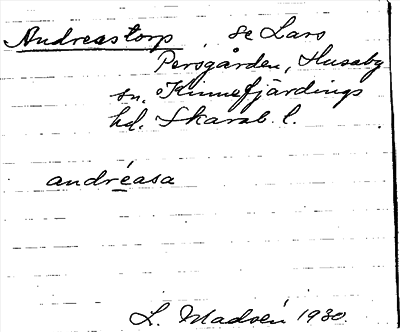 Andreastorp, se Lars
Persgården, Husaby
sn, Kinnefjärdings
hd. Skarab. l.
andréasa
L. Madsén 1930.